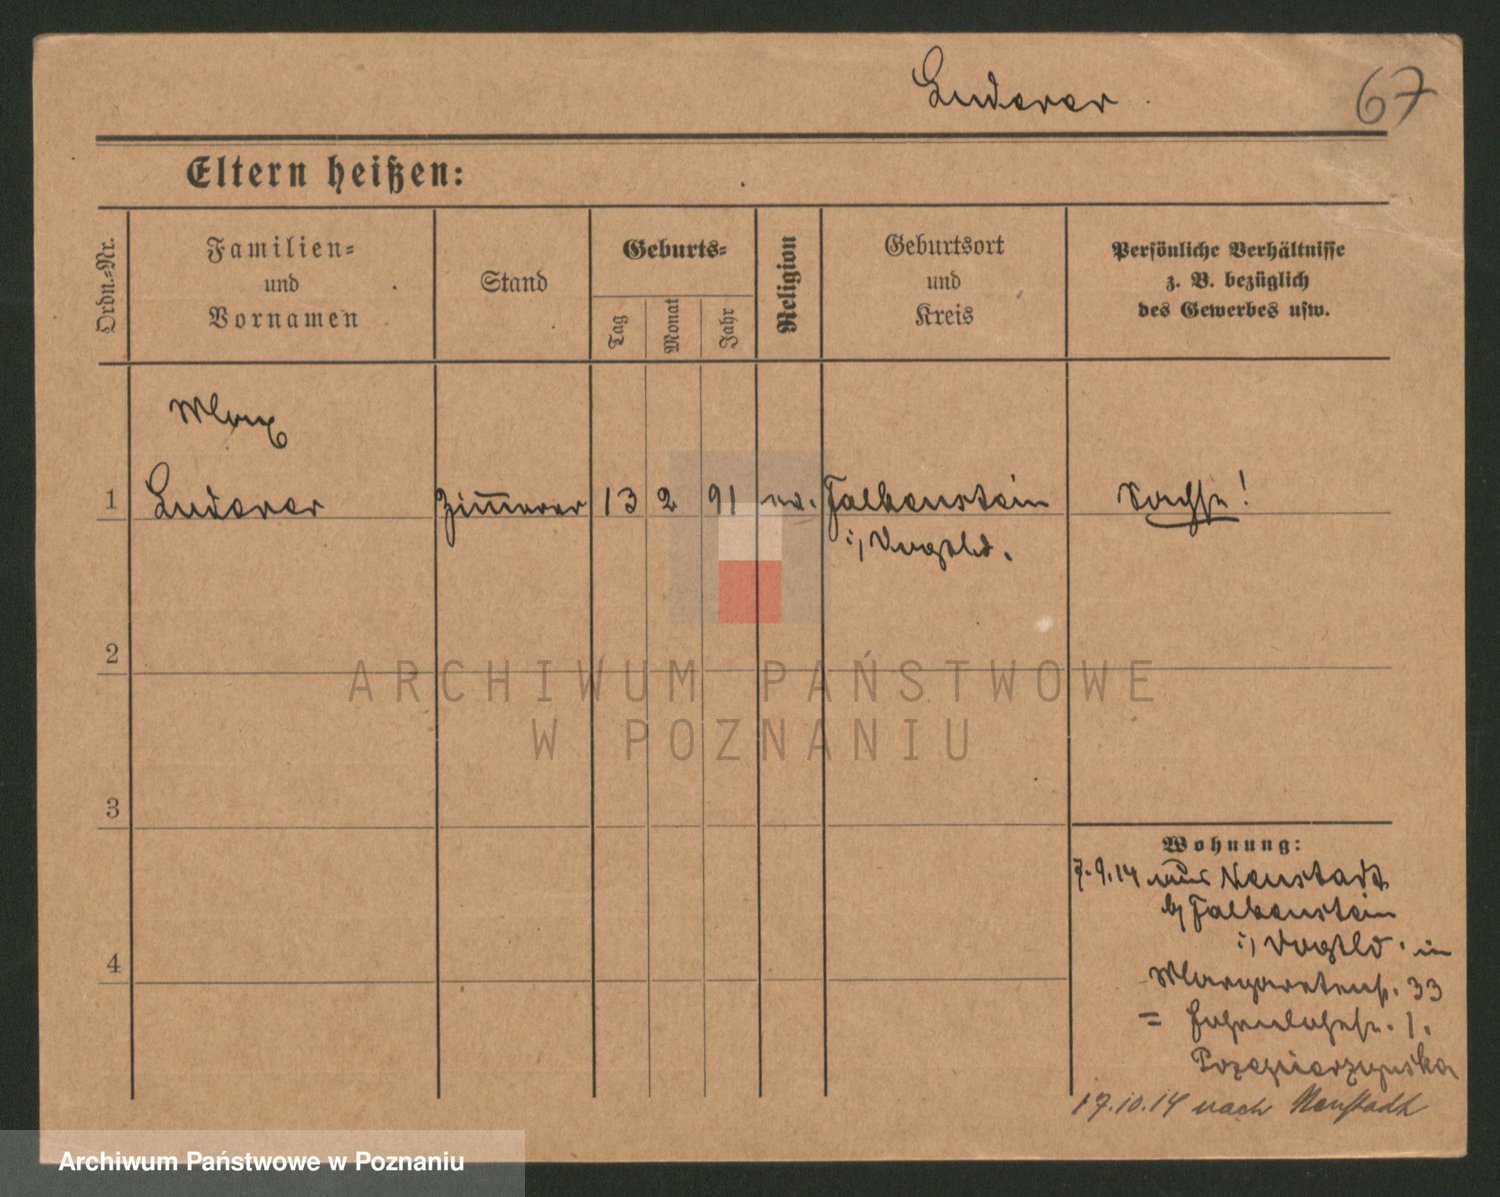 Luderer
67
Eltern heißen:
Ordn.-Nr.
Familien-
und
Vornamen
Stand
Geburts-
Tag
Monat
Jahr
Religion
Geburtsort
und
Kreis
Persönliche Verhältnisse
z. B. bezüglich
des Gewerbes usw.
Max
1 Luderer Zimmerer 13 2 91 ev. Falkenstein Sachse!
i/ Vogtld.
2
3
4
Wohnung:
7.9.14 aus Neustadt
b/ Falkenstein
i/ Vogtld. in
Margaretenstr. 33
= Hohenlohestr. 1.
17.10.14 nach Neustadt
ARCHIWUM PAŃSTWOWE
W POZNANIU
Archiwum Państwowe w Poznaniu